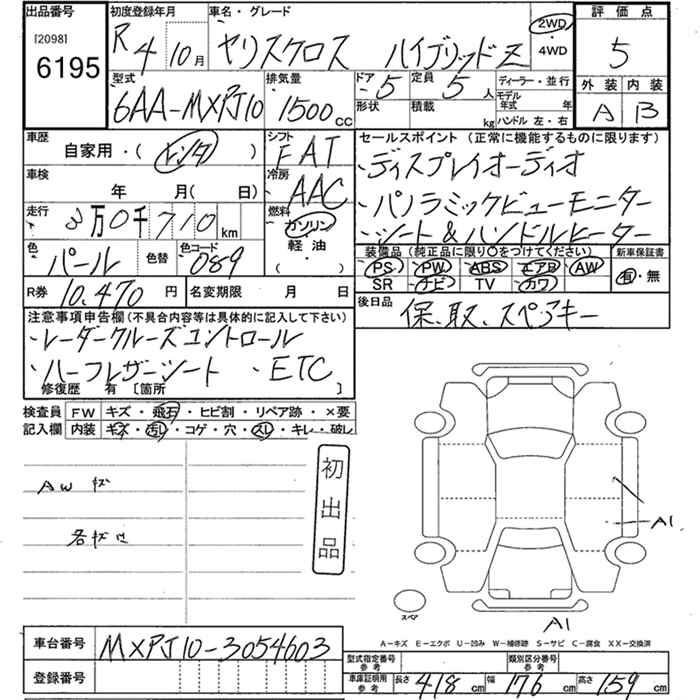 出品番号 初度登録年月 車名・グレード 評価点
[2098] 6195 R4 10月 ヤリスクロス ハイブリッドZ 2WD・4WD 5
型式 排気量 ドア 5 定員 5人 ディーラー・並行 外装 内装
6AA-MXPJ10 1500cc 形状 積載 kg モデル年式 年 ハンドル 左・右 A B
車歴 自家用・(レンタ) シフト FAT セールスポイント(正常に機能するものに限ります)
車検 年 月(日) 冷房 AAC ・ディスプレイオーディオ
・パノラミックビューモニター
走行 万0千710km 燃料 ガソリン 軽油 ( ) ・シート&ハンドルヒーター
色 パール 色替 色コード 089 装備品(純正品に限り○をつけてください) 新車保証書
PS PW ABS エアB AW 有・無
SR ナビ TV カワ
R券 10,470円 名変期限 月 日 後日品 保、取、スペアキー
注意事項申告欄(不具合内容等は具体的に記入して下さい)
・レーダークルーズコントロール
・ハーフレザーシート ・ETC
修復歴 有 [箇所 ]
検査員 FW キズ・飛石・ヒビ割・リペア跡・×要
記入欄 内装 キズ・汚レ・コゲ・穴・スレ・キレ・破レ
初出品
AW キズ
各キズ
A1
スペア
A1
A-キズ E-エクボ U-凹み W-補修跡 S-サビ C-腐食 XX-交換済
車台番号 MXPJ10-3054603 型式指定番号 参考 類別区分番号 参考
登録番号 車庫証明用 参考 長さ 418cm 幅 176cm 高さ 159cm